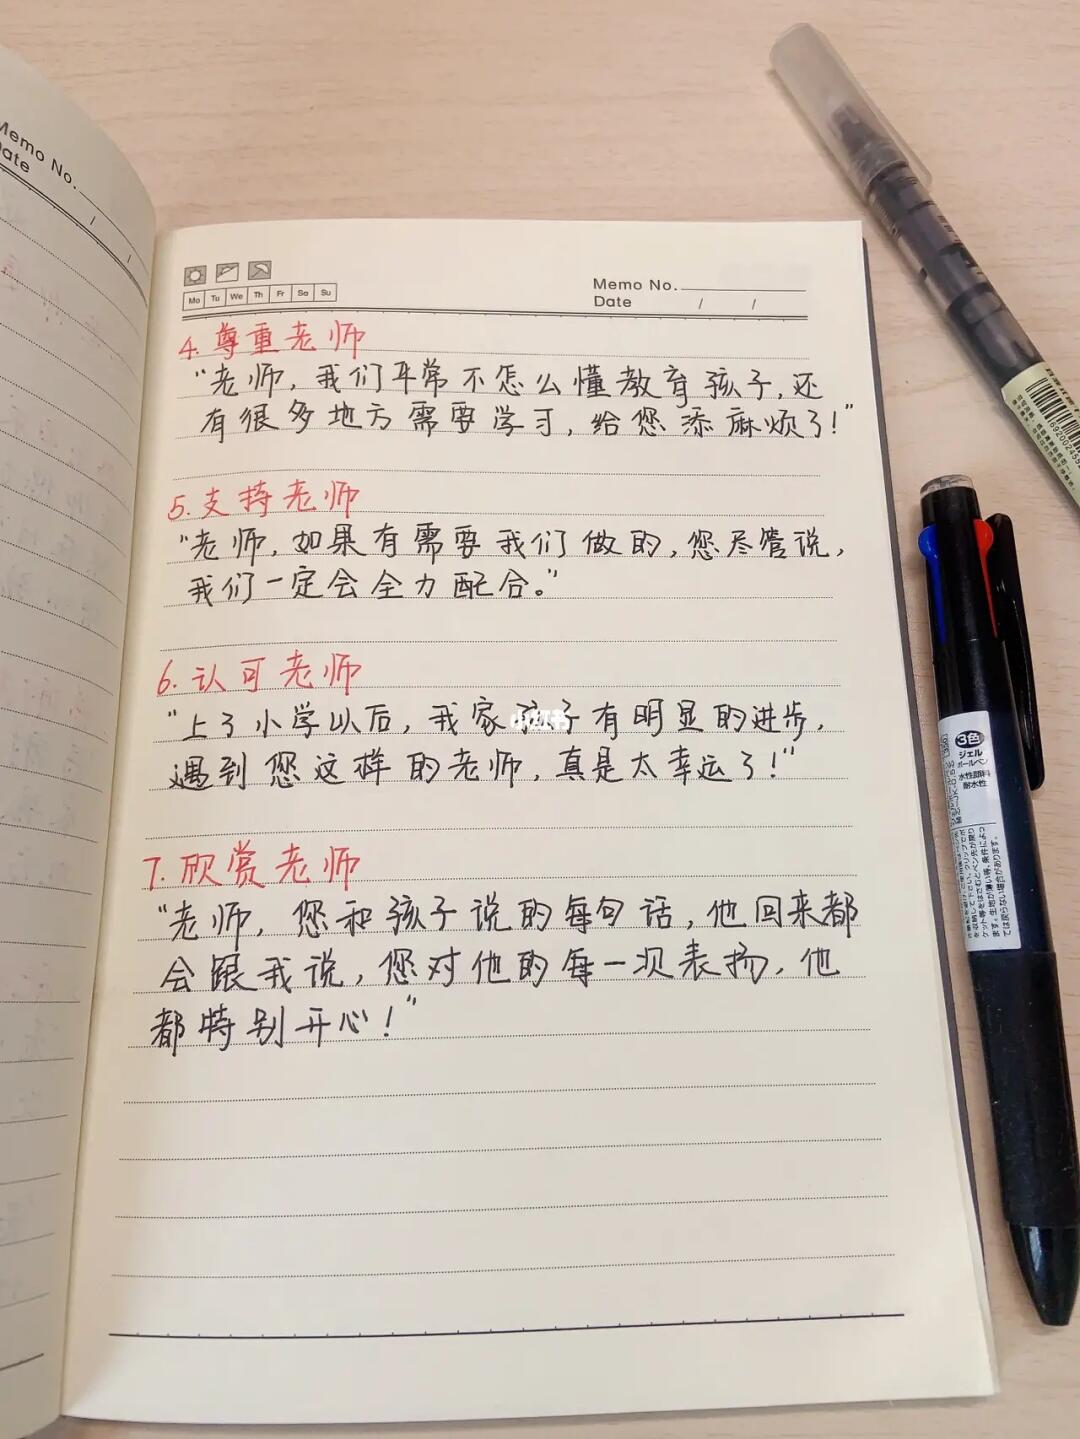 Memo No.
Date
Mo Tu We Th Fr Sa Su
Memo No.
Date / /
4.尊重老师
“老师，我们平常不怎么懂教育孩子，还
有很多地方需要学习，给您添麻烦了！”
5.支持老师
“老师，如果有需要我们做的，您尽管说，
我们一定会全力配合。”
6.认可老师
“上了小学以后，我家孩子有明显的进步，
遇到您这样的老师，真是太幸运了！”
小红书
7.欣赏老师
“老师，您和孩子说的每句话，他回来都
会跟我说，您对他的每一次表扬，他
都特别开心！”
3色
ジェル
ボールペン
水性顔料
耐水性